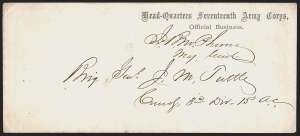 Head-Quarters Seventeenth Army Corps,
Official Business.
Maj Genl
Brig Genl. J. M. Tuttle
Comdg 3d Div. 15 AC